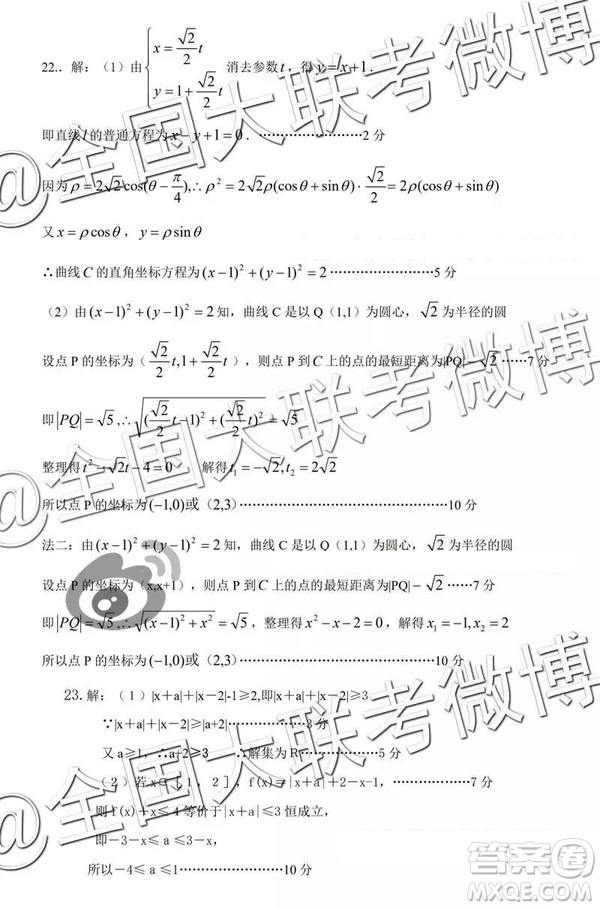 22.. 解：（1）由{x = √2/2 t, y = 1 + √2/2 t 消去参数 t，得 y = x + 1．
即直线 l 的普通方程为 x − y + 1 = 0．………………2 分
因为 ρ = 2√2 cos(θ − π/4), ∴ ρ² = 2√2ρ(cosθ + sinθ)·√2/2 = 2ρ(cosθ + sinθ)
又 x = ρcosθ，y = ρsinθ
∴曲线 C 的直角坐标方程为 (x−1)² + (y−1)² = 2 …………………5 分
（2）由 (x−1)² + (y−1)² = 2 知，曲线 C 是以 Q（1,1）为圆心，√2 为半径的圆
设点 P 的坐标为（√2/2 t, 1 + √2/2 t），则点 P 到 C 上的点的最短距离为|PQ| − √2 ……7 分
即 |PQ| = √5, ∴ √((√2/2 t − 1)² + (√2/2 t)²) = √5
整理得 t² − √2t − 4 = 0 解得 t₁ = −√2, t₂ = 2√2
所以点 P 的坐标为 (−1,0) 或（2,3）…………………………………10 分
法二：由 (x−1)² + (y−1)² = 2 知，曲线 C 是以 Q（1,1）为圆心，√2 为半径的圆
设点 P 的坐标为（x,x+1），则点 P 到 C 上的点的最短距离为|PQ| − √2 ……7 分
即 |PQ| = √5, ∴ √((x−1)² + x²) = √5，整理得 x² − x − 2 = 0，解得 x₁ = −1, x₂ = 2
所以点 P 的坐标为 (−1,0) 或（2,3）………………………………10 分
23.解：（1）|x＋a|＋|x－2|-1≥2,即|x＋a|＋|x－2|≥3
∵|x＋a|＋|x－2|≥|a+2|……………3 分
又 a≥1，∴a+2≥3 ∴解集为 R……………5 分
（2）若 x∈［1，2］，f(x)=|x＋a|＋2－x-1，……………7 分
则 f(x)＋x≤4 等价于|x＋a|≤3 恒成立，
即－3－x≤a≤3－x，
所以－4≤a≤1…………………10 分
@全国大联考微博
@全国大联考微博
@全国大联考微博
答案圈
MXQE.COM